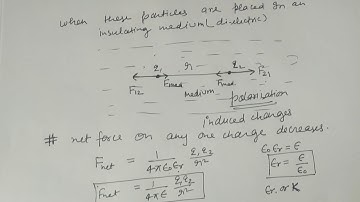 when these particles are placed in an
insulating medium (dielectric)
q₁ r q₂
F₁₂ Fmed Fmed F₂₁
medium
polarization
induced charges
# net force on any one charge decreases.
Fnet = 1/4πε₀εr q₁q₂/r² ε₀εr = ε
εr = ε/ε₀
Fnet = 1/4πε q₁q₂/r²
εr or K